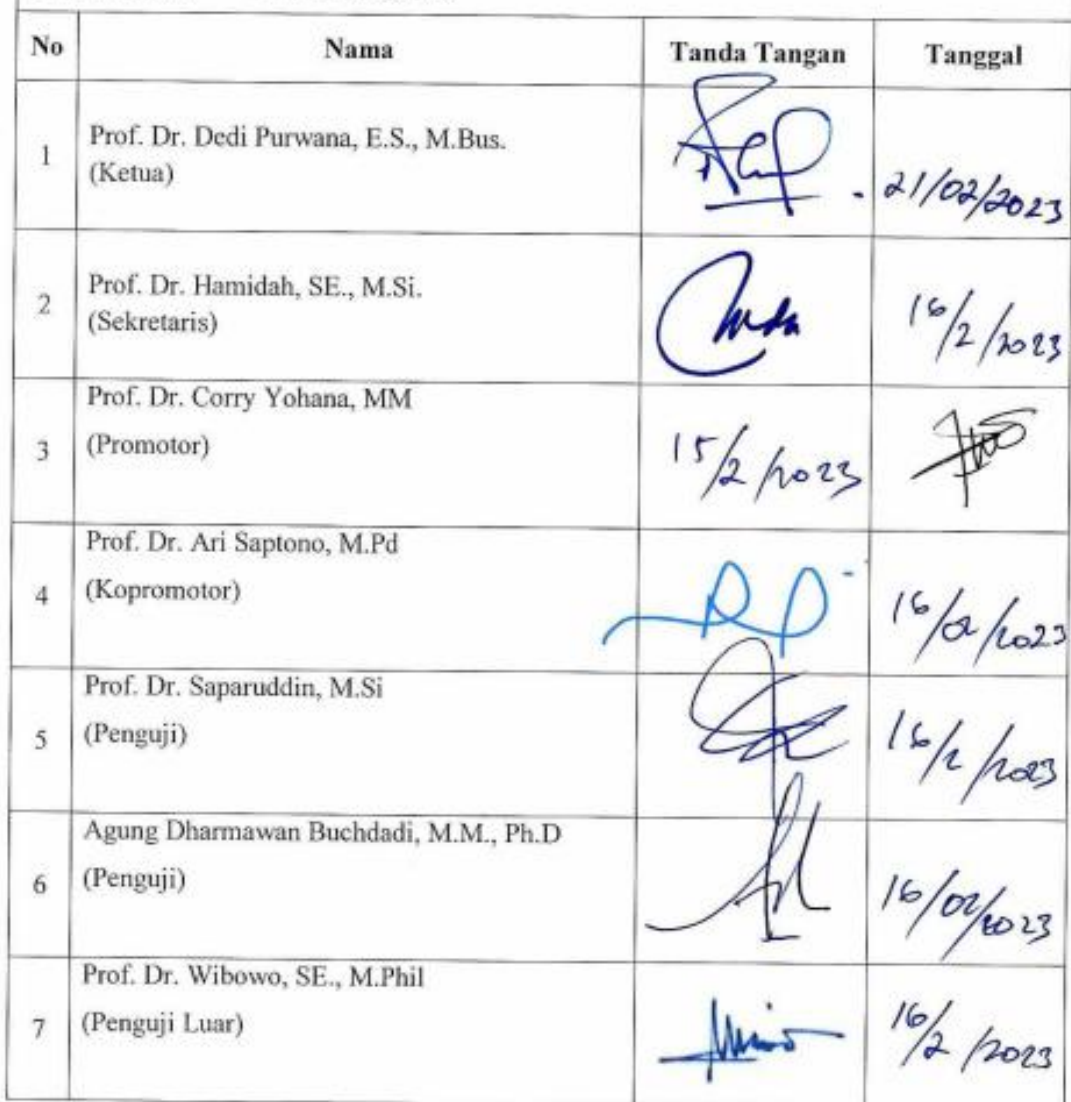 No Nama Tanda Tangan Tanggal
1 Prof. Dr. Dedi Purwana, E.S., M.Bus.
(Ketua)
21/02/2023
2 Prof. Dr. Hamidah, SE., M.Si.
(Sekretaris)
16/2/2023
3 Prof. Dr. Corry Yohana, MM
(Promotor)
15/2/2023
4 Prof. Dr. Ari Saptono, M.Pd
(Kopromotor)
16/02/2023
5 Prof. Dr. Saparuddin, M.Si
(Penguji)
16/2/2023
6 Agung Dharmawan Buchdadi, M.M., Ph.D
(Penguji)
16/02/2023
7 Prof. Dr. Wibowo, SE., M.Phil
(Penguji Luar)
16/2/2023